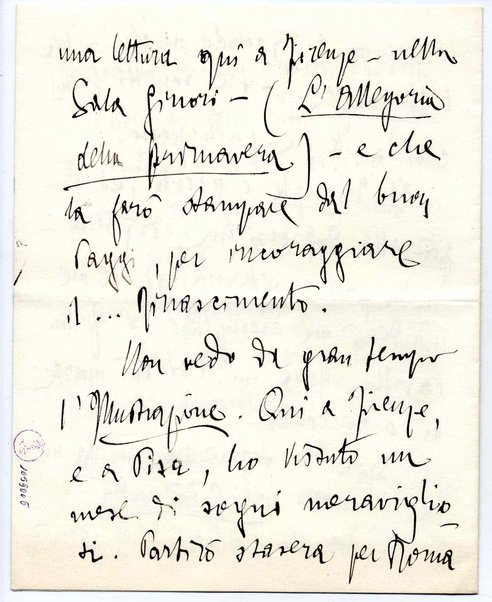 una lettura qui a Firenze – nella
Sala Ginori – (L'Allegoria
della primavera) – e che
la farò stampare dal buon
Paggi, per incoraggiare
il ... Rinascimento.
Non vedo da gran tempo
l'Illustrazione. Qui a Firenze,
e a Pisa, ho vissuto un
mese di sogni meraviglio
si. Partirò stasera per Roma